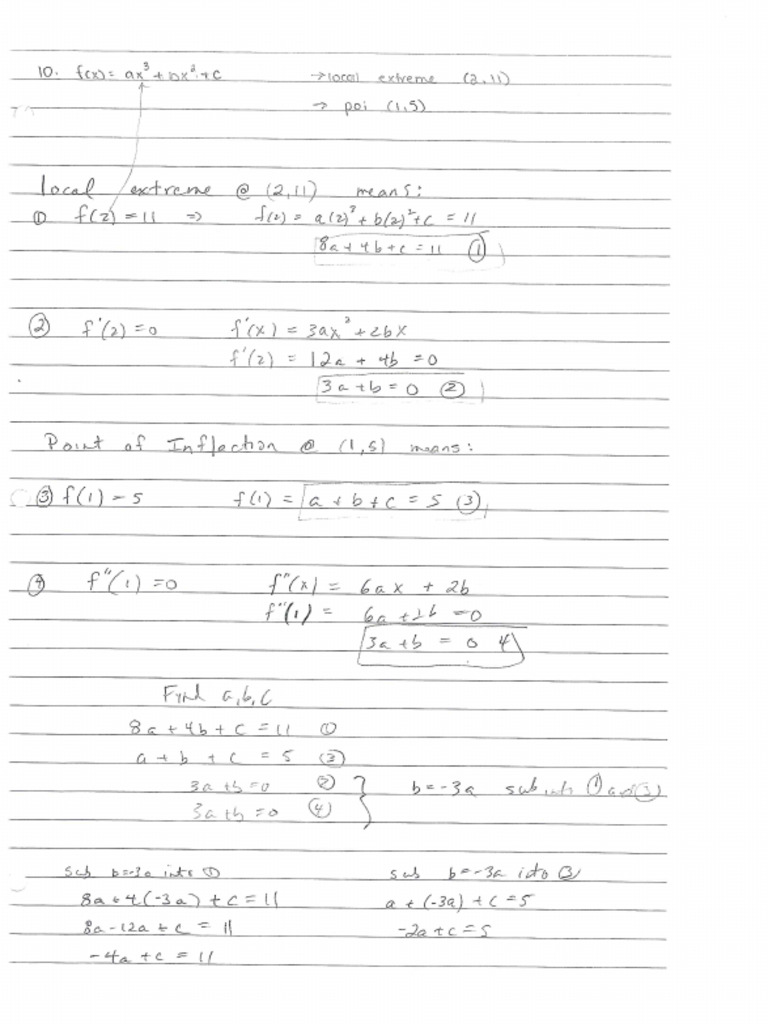 10. f(x) = ax³ + bx² + c → local extreme (2,11)
→ poi (1,5)
local extreme @ (2,11) means:
① f(2) = 11 ⇒ f(2) = a(2)³ + b(2)² + c = 11
8a + 4b + c = 11 ①
② f'(2) = 0 f'(x) = 3ax² + 2bx
f'(2) = 12a + 4b = 0
3a + b = 0 ②
Point of Inflection @ (1,5) means:
③ f(1) = 5 f(1) = a + b + c = 5 ③
④ f"(1) = 0 f"(x) = 6ax + 2b
f"(1) = 6a + 2b = 0
3a + b = 0 4
Find a, b, c
8a + 4b + c = 11 ①
a + b + c = 5 ③
3a + b = 0 ② } b = -3a sub into ① and ③
3a + b = 0 ④
sub b=-3a into ① sub b=-3a into ③
8a + 4(-3a) + c = 11 a + (-3a) + c = 5
8a - 12a + c = 11 -2a + c = 5
-4a + c = 11